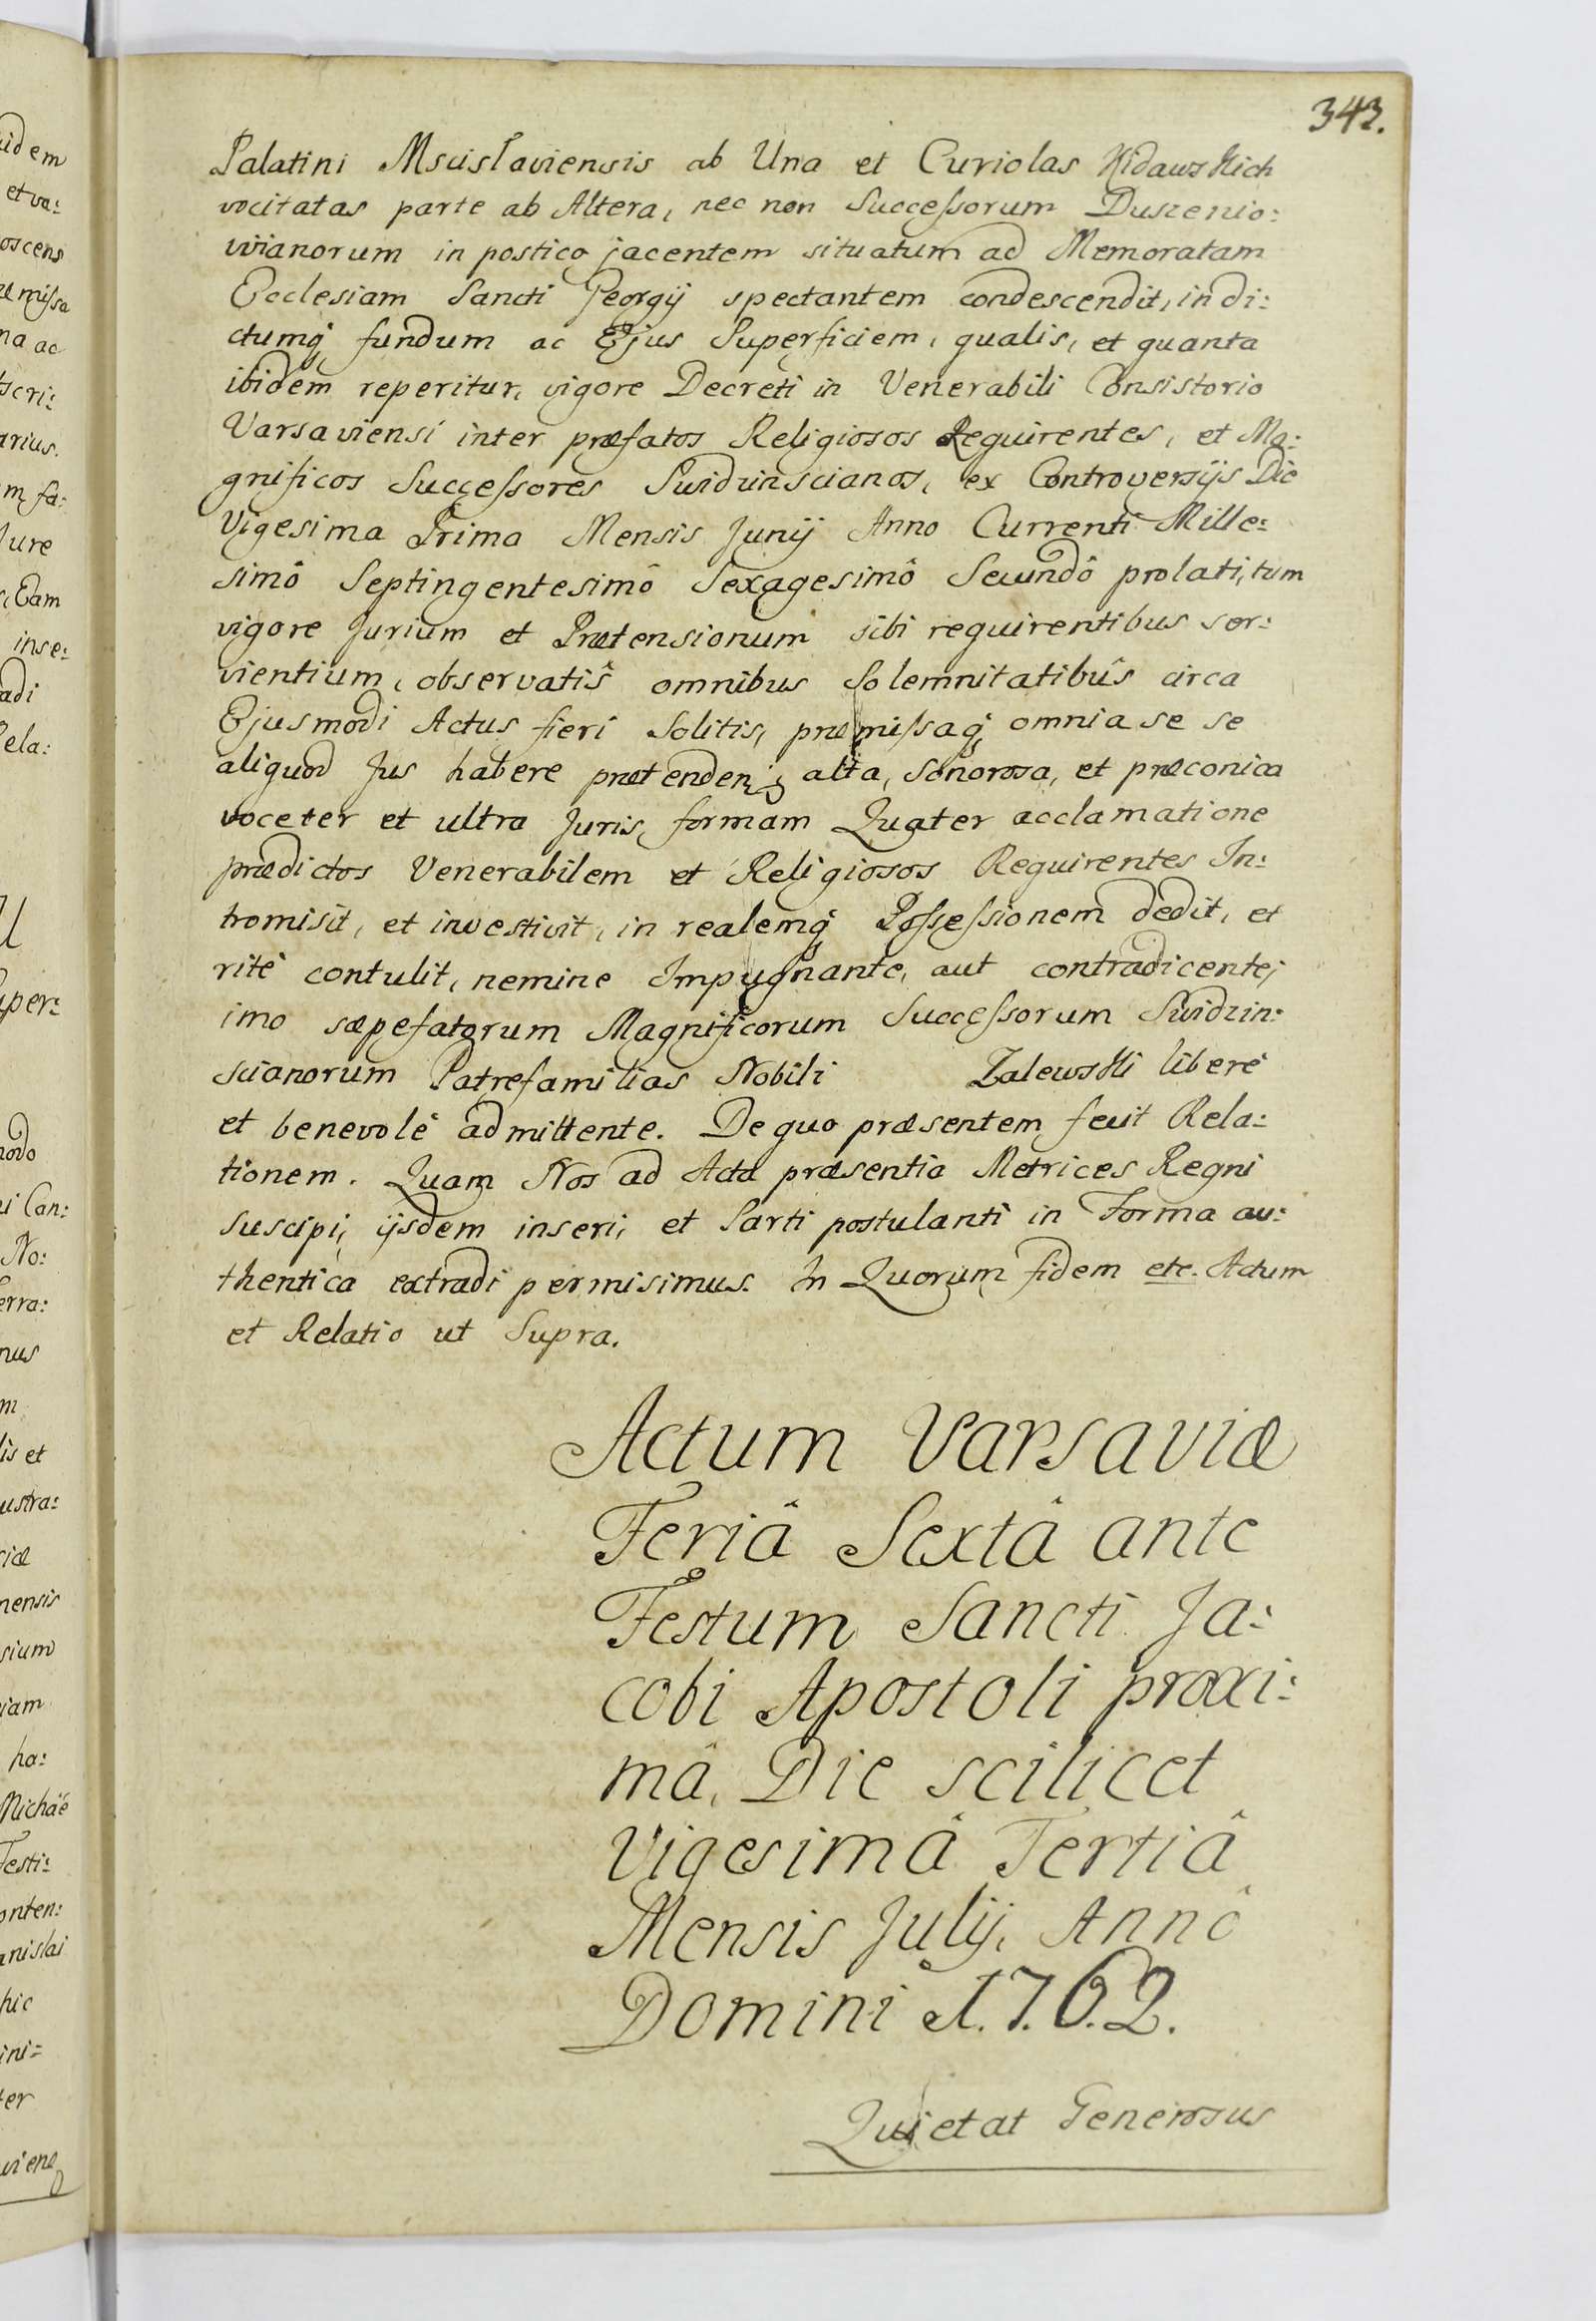 343.
Palatini Mscislaviensis ab Una et Curiolas Kidawskich
vocitatas parte ab Altera, nec non Successorum Duszenio:
wianorum in postico jacentem situatum ad Memoratam
Ecclesiam Sancti Georgij spectantem condescendit, in di:
ctumq fundum ac Ejus Superficiem, qualis, et quanta
ibidem reperitur, vigore Decreti in Venerabili Consistorio
Varsaviensi inter præfatos Religiosos Requirentes, et Ma:
gnificos Successores Swidzinscianos, ex Controversijs Die
Vigesima Prima Mensis Junij Anno Currenti Mille:
simô Septingentesimô Sexagesimô Secundô prolati, tum
vigore Jurium et Prætensionum sibi requirentibus ser:
vientium, observatîs omnibus Solemnitatibûs circa
Ejusmodi Actus fieri Solitis, præmissaq omnia se se
aliquod Jus habere prætenden alta, Sonorosa, et præconica
voce ter et ultra Juris formam Quater acclamatione
prædictos Venerabilem et Religiosos Requirentes In:
tromisit, et investivit, in realemq Possessionem dedit, et
ritè contulit, nemine Impugnante, aut contradicente,
imo sæpefatorum Magnificorum Successorum Swidzin:
scianorum Patrefamilias Nobili Zalewski liberè
et benevolè admittente. De quo præsentem fecit Rela:
tionem. Quam Nos ad Acta præsentia Metrices Regni
suscipi, ijsdem inseri, et Parti postulanti in Forma au:
thentica extradi permisimus. In Quorum fidem etc. Actum
et Relatio ut Supra.
Actum Varsaviæ
Feriâ Sextâ ante
Festum Sancti Ja:
cobi Apostoli proxi:
mâ, Die scilicet
Vigesimâ Tertiâ
Mensis Julij, Annô
Domini 1.7.6.2.
Quietat Generosus